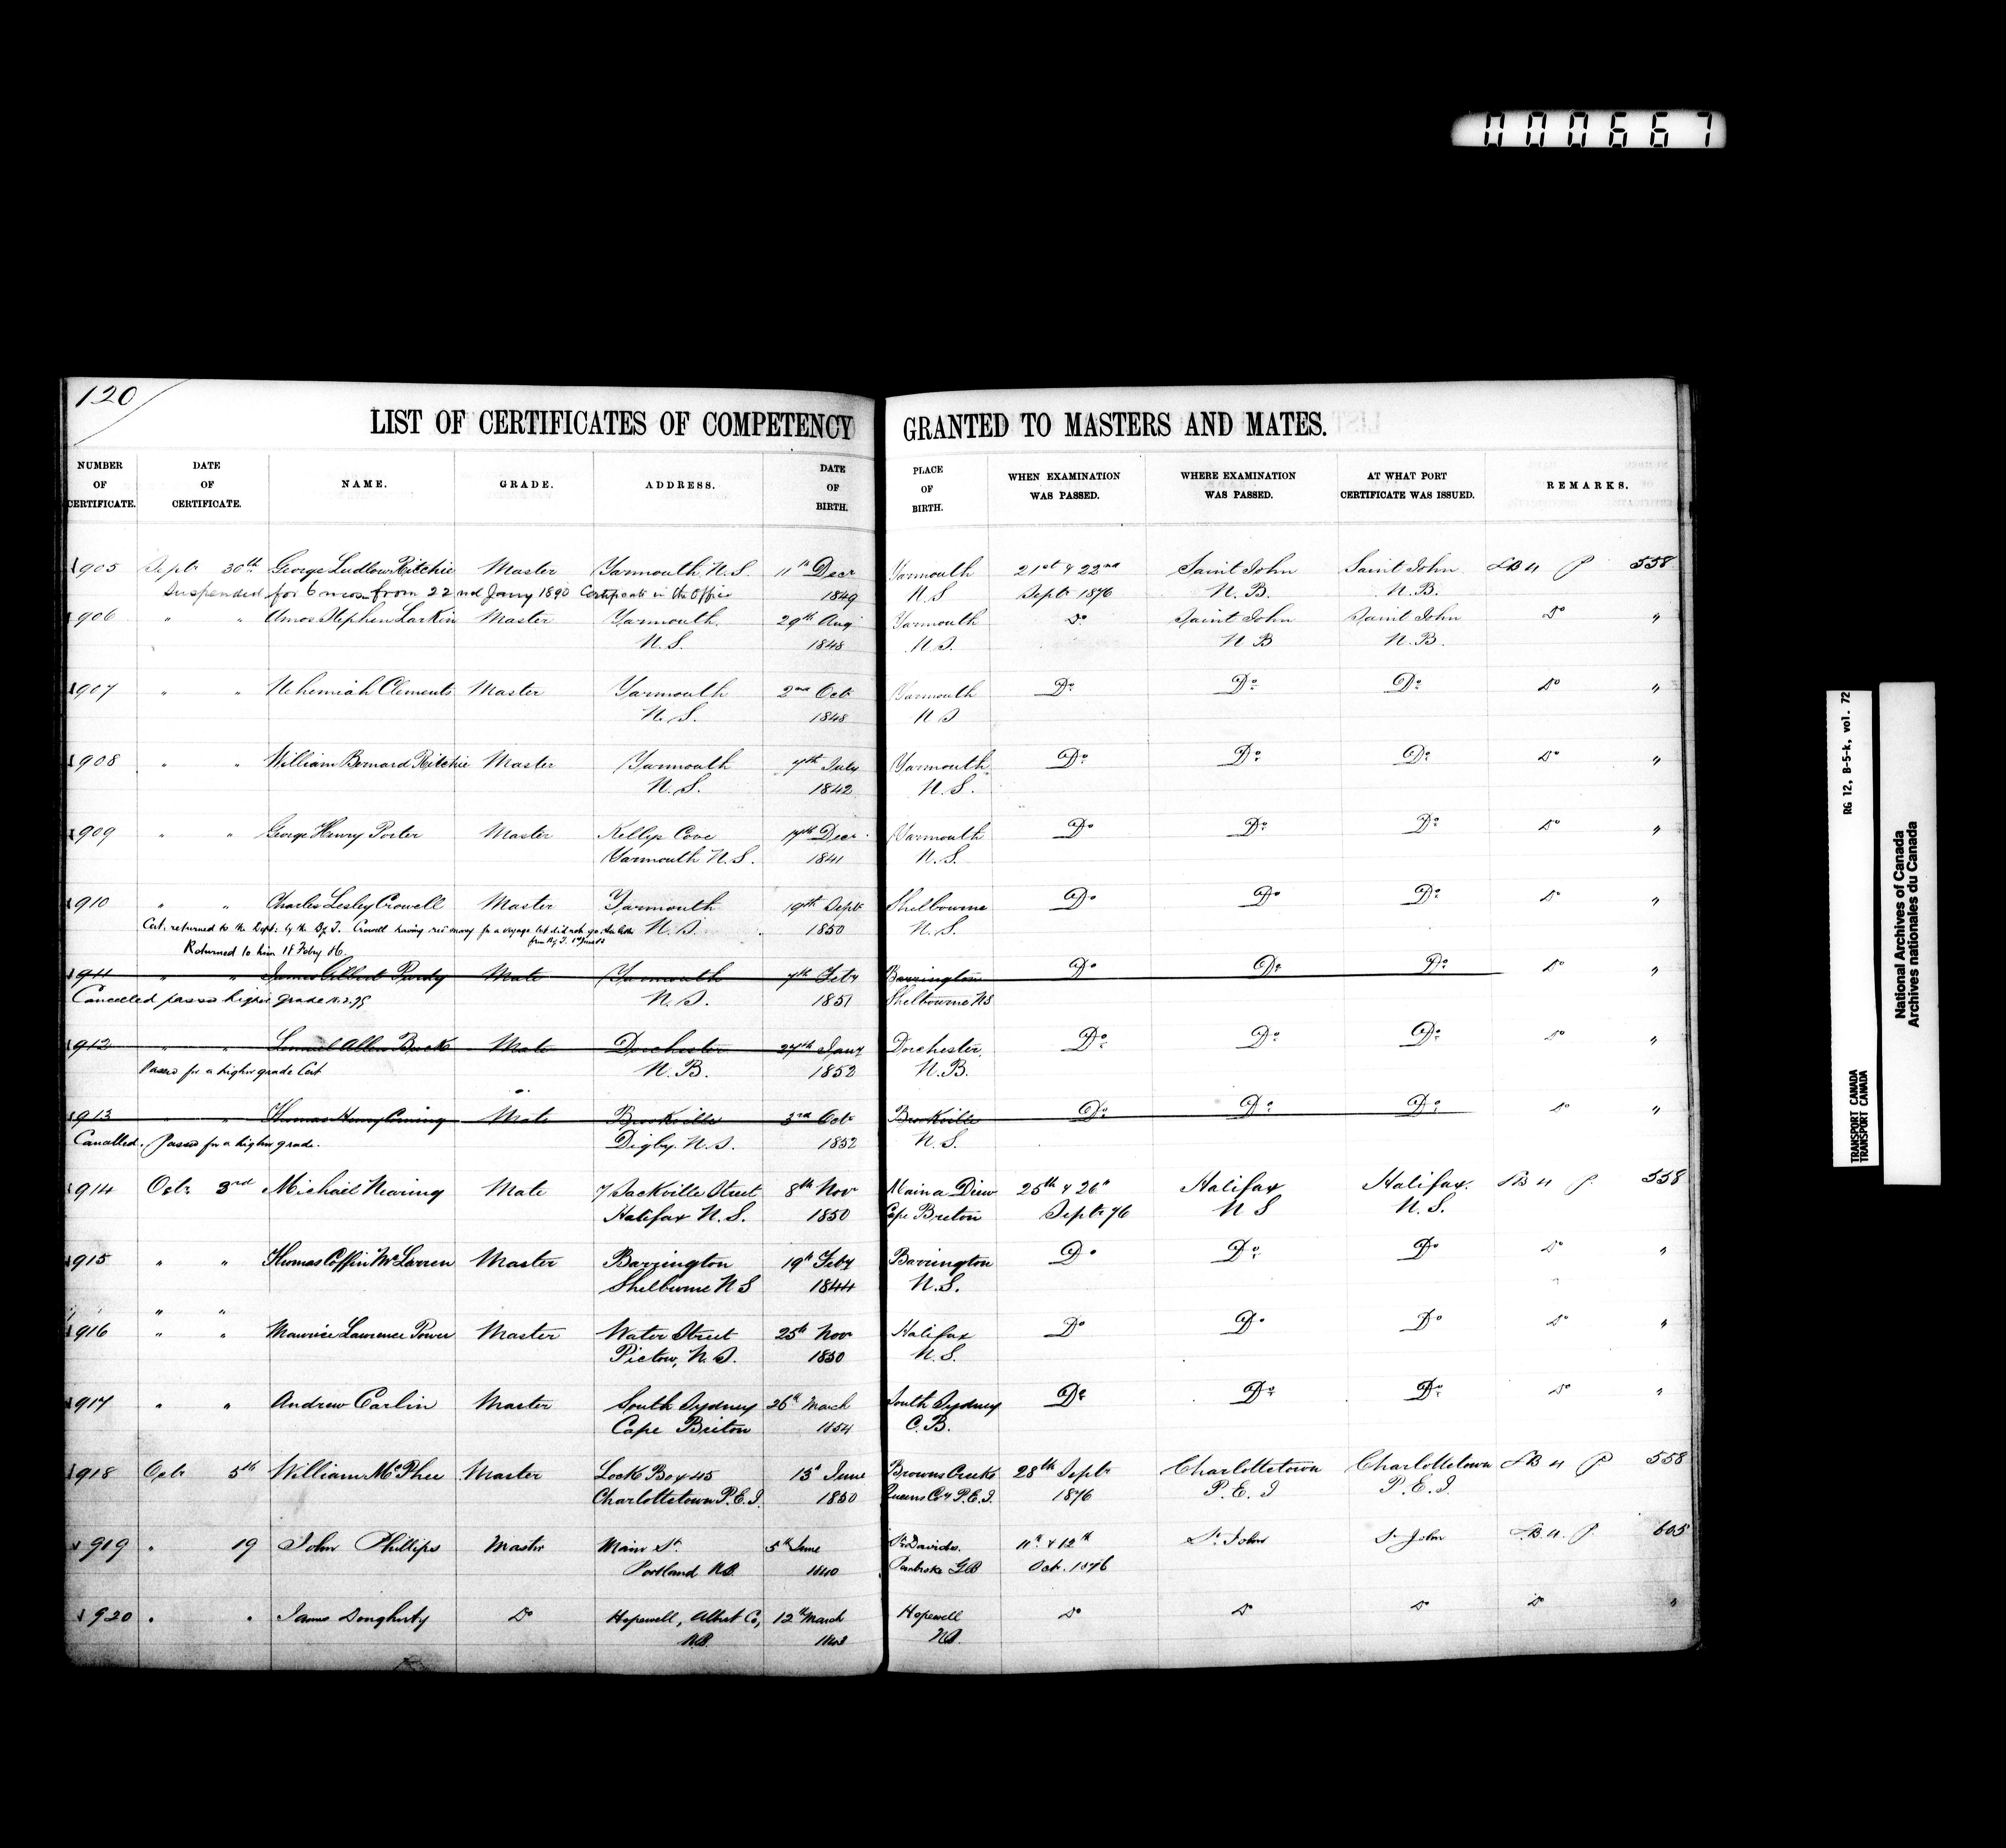 000667
120
LIST OF CERTIFICATES OF COMPETENCY GRANTED TO MASTERS AND MATES.
NUMBER OF CERTIFICATE. DATE OF CERTIFICATE. NAME. GRADE. ADDRESS. DATE OF BIRTH. PLACE OF BIRTH. WHEN EXAMINATION WAS PASSED. WHERE EXAMINATION WAS PASSED. AT WHAT PORT CERTIFICATE WAS ISSUED. REMARKS.
905 Septr 30th George Ludlow Ritchie Master Yarmouth N.S. 11th Decr Yarmouth 21st & 22nd Saint John Saint John LB 11 P 558
Suspended for 6 mos from 22nd Jany 1890 Certificate in the Office 1849 N S Septr 1876 N. B. N. B.
906 " " Amos Stephen Larkin Master Yarmouth 29th Aug Yarmouth Do Saint John Saint John Do "
N. S. 1848 N. S. N B N. B.
907 " " Nehemiah Clements Master Yarmouth 2nd Octr Yarmouth Do Do Do Do "
N. S. 1848 N S
908 " " William Bernard Ritchie Master Yarmouth 7th July Yarmouth Do Do Do Do "
N. S. 1842 N. S.
909 " " George Henry Porter Master Kellys Cove 17th Decr Yarmouth Do Do Do Do "
Yarmouth N. S. 1841 N. S.
910 " " Charles Lesley Crowell Master Yarmouth 19th Septr Shelbourne Do Do Do Do "
Cert. returned to the Dept. by the B of T. Crowell having recd money for a voyage but did not go. N. S. 1850 N. S.
Returned to him 18 Feby 86.
911 " " James Gilbert Purdy Mate Yarmouth 7th Feby Barrington Do Do Do Do "
Cancelled passed higher grade N. S. 1851 Shelbourne NS
912 " " Lemuel Allen Buck Mate Dorchester 27th Jany Dorchester Do Do Do Do "
Passed for a higher grade Cert N. B. 1852 N. B.
913 " " Thomas Henry Corning Mate Brookville 3rd Octr Brookville Do Do Do Do "
Cancelled. Passed for a higher grade. Digby N. S. 1852 N. S.
914 Octr 3rd Michael Nearing Mate 7 Sackville Street 8th Novr Main a Dieu 25th & 26th Halifax Halifax LB 11 P 558
Halifax N. S. 1850 Cape Breton Septr 76 N S N. S.
915 " " Thomas Coffin McLarren Master Barrington 19th Feby Barrington Do Do Do Do "
Shelburne N S 1844 N. S.
" "
916 " " Maurice Lawrence Power Master Water Street 25th Novr Halifax Do Do Do Do "
Pictou, N. S. 1850 N. S.
917 " " Andrew Carlin Master South Sydney 26th March South Sydney Do Do Do Do "
Cape Briton 1854 C. B.
918 Octr 5th William McPhee Master Lock Box 45 15th June Browns Creek 28th Septr Charlottetown Charlottetown LB 11 P 558
Charlottetown P. E. I. 1850 Queens Cy P. E. I. 1876 P. E. I P. E. I.
919 " 19 John Phillips Master Main St. 5th June St Davids. 11th & 12th St. John St John LB. 11. P 605
Portland NB. 1840 Pembroke GB Oct. 1876
920 " " James Dougherty Do Hopewell, Albert Co, 12th March Hopewell Do Do Do Do "
NB. NB.
RG 12, B-5-k, vol. 72
TRANSPORT CANADA
TRANSPORT CANADA
National Archives of Canada
Archives nationales du Canada